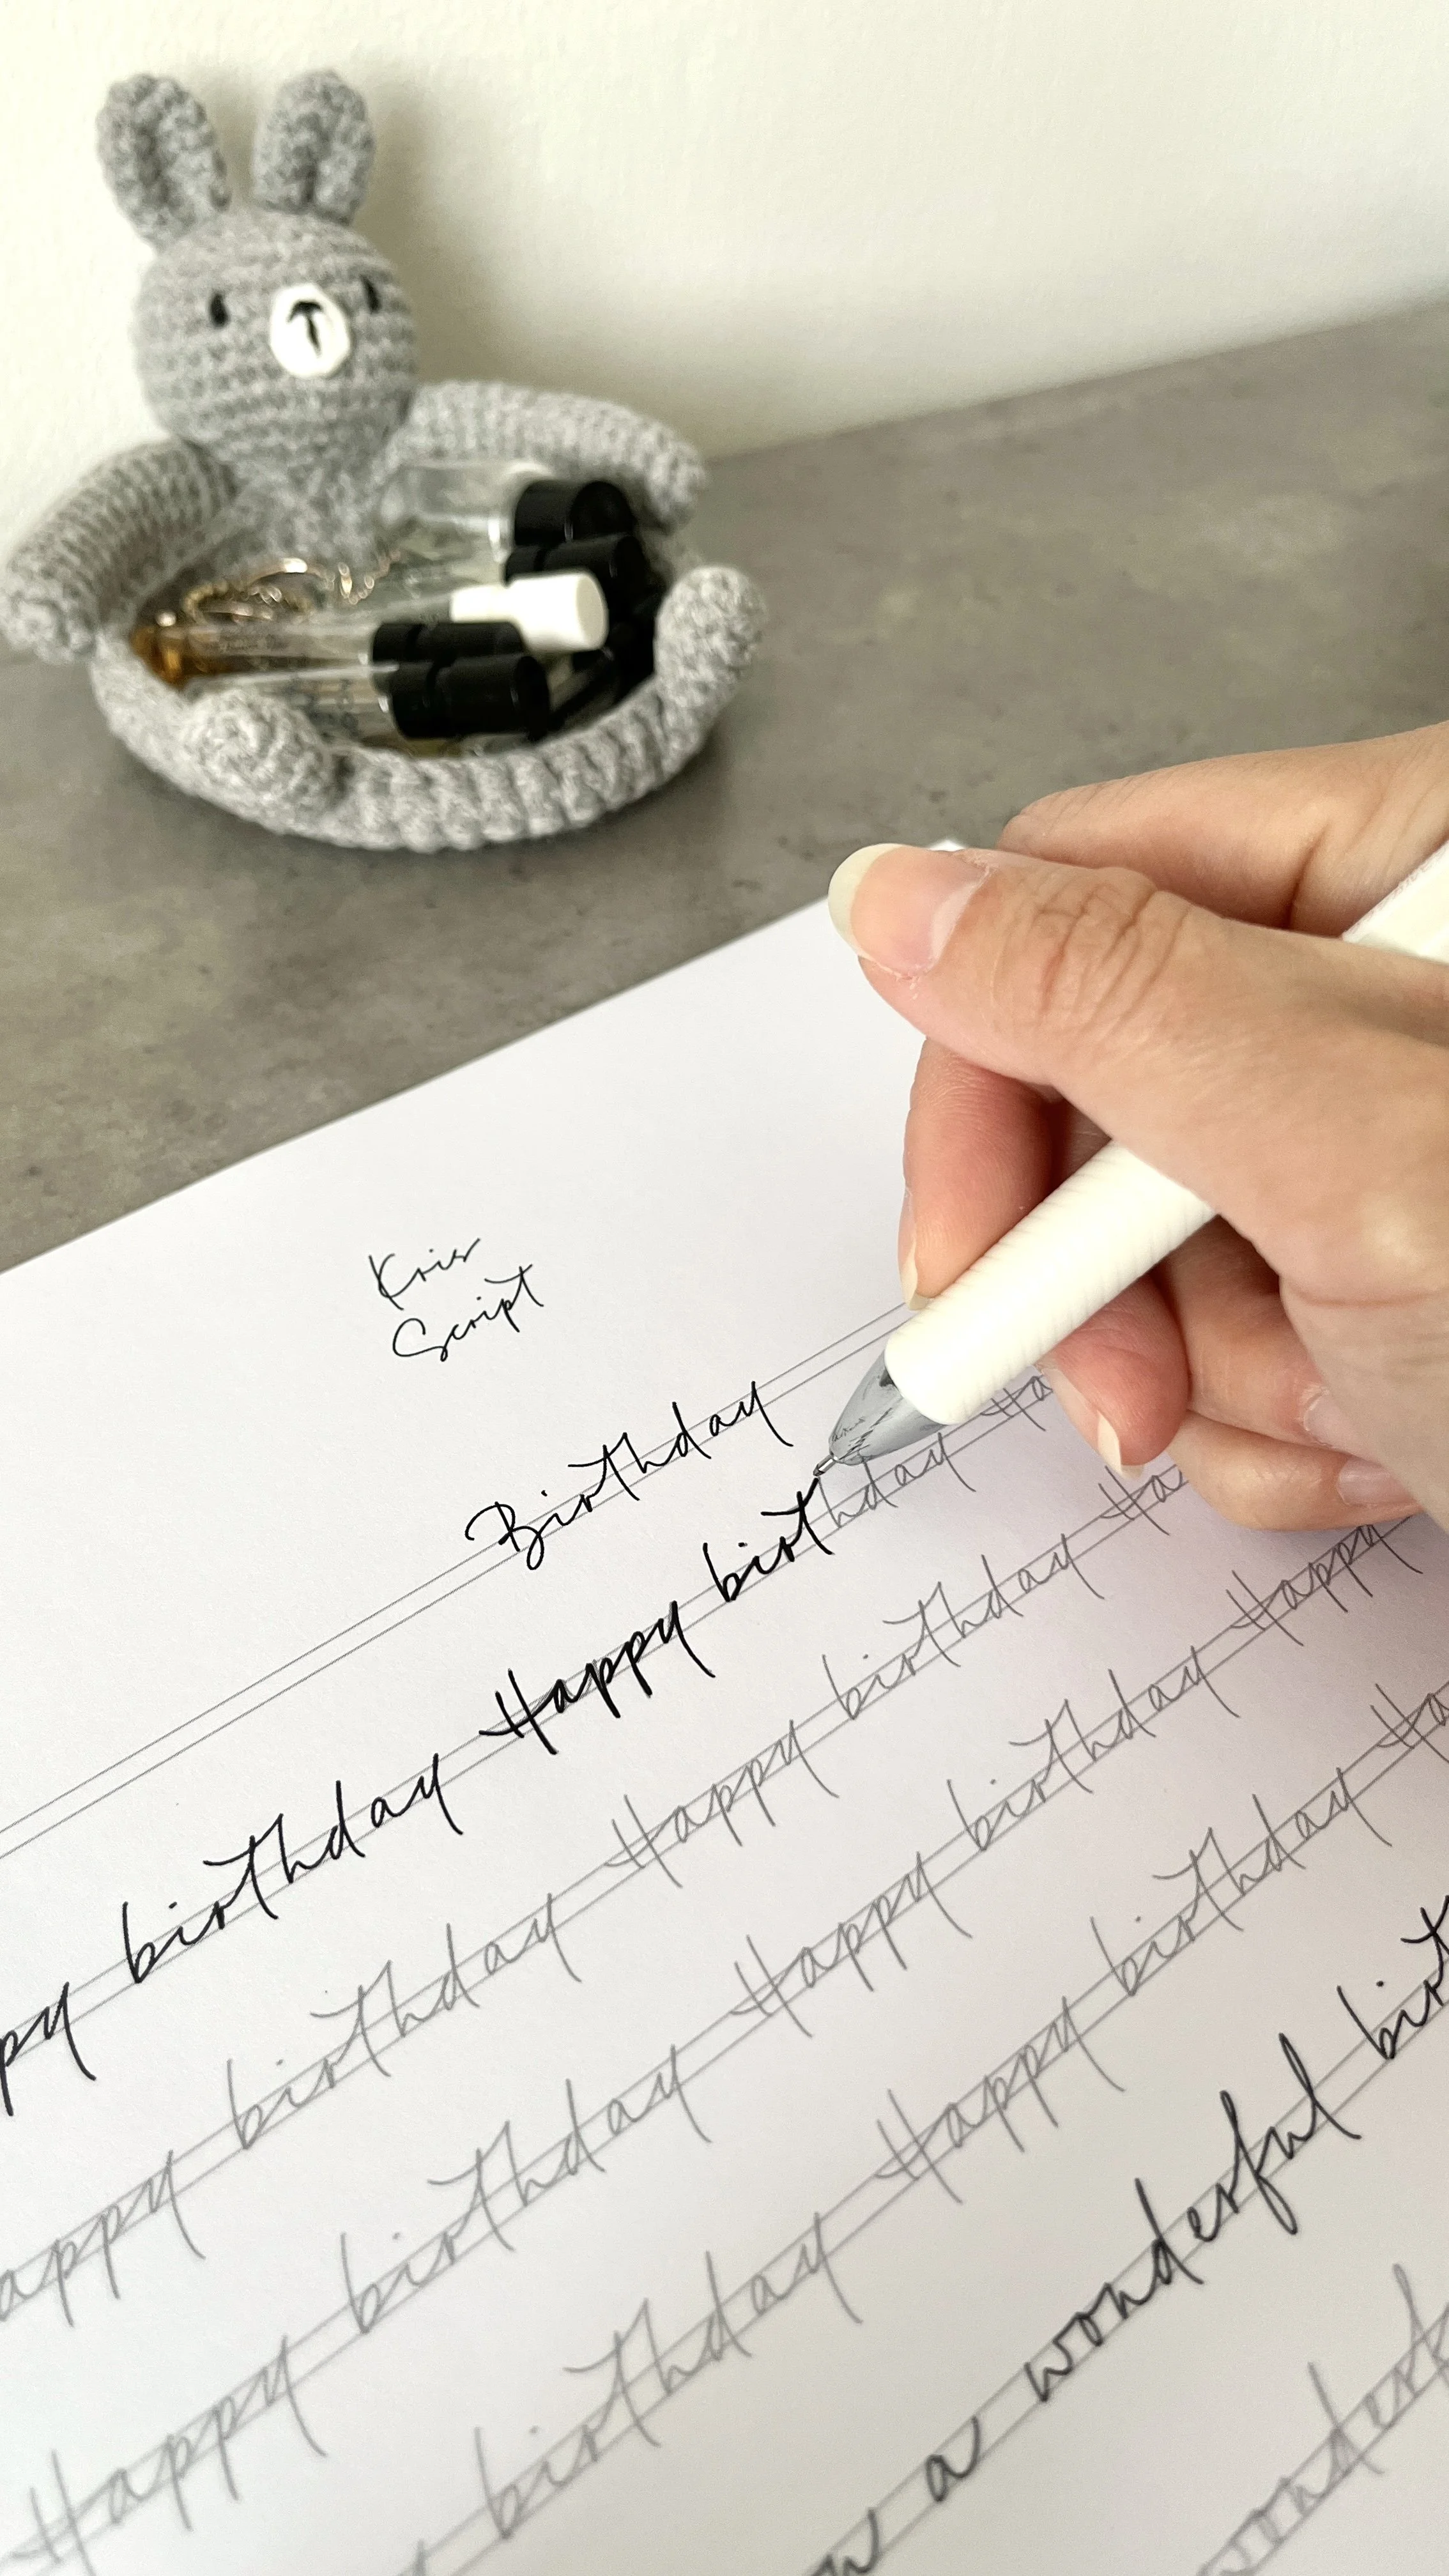 Krier
Script
Birthday
birthday Happy birthday
birthday Happy birthday Ha
Happy birthday Happy birthday Ha
Happy birthday Happy birthday Happy
birthday Happy birthday Ha
a wonderful